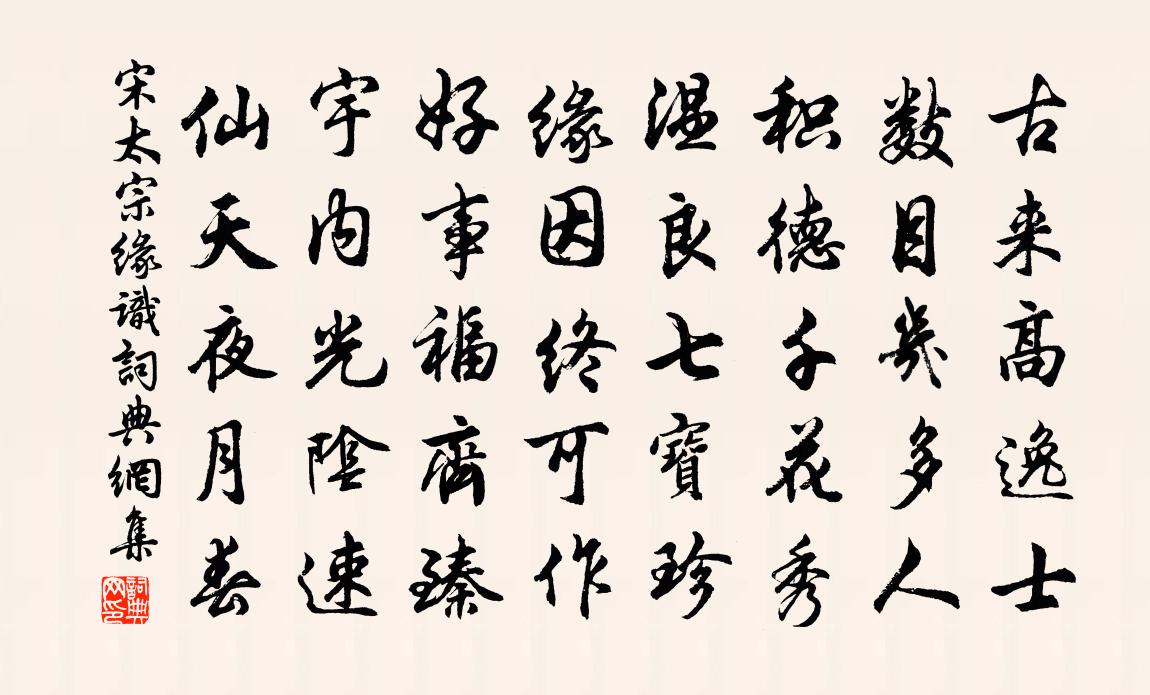 古来高逸士
数目几多人
积德千花秀
温良七寳珍
缘因终可作
好事福齊臻
宇内光陰速
仙天夜月春
宋太宗缘識詞典網集
詞典网印